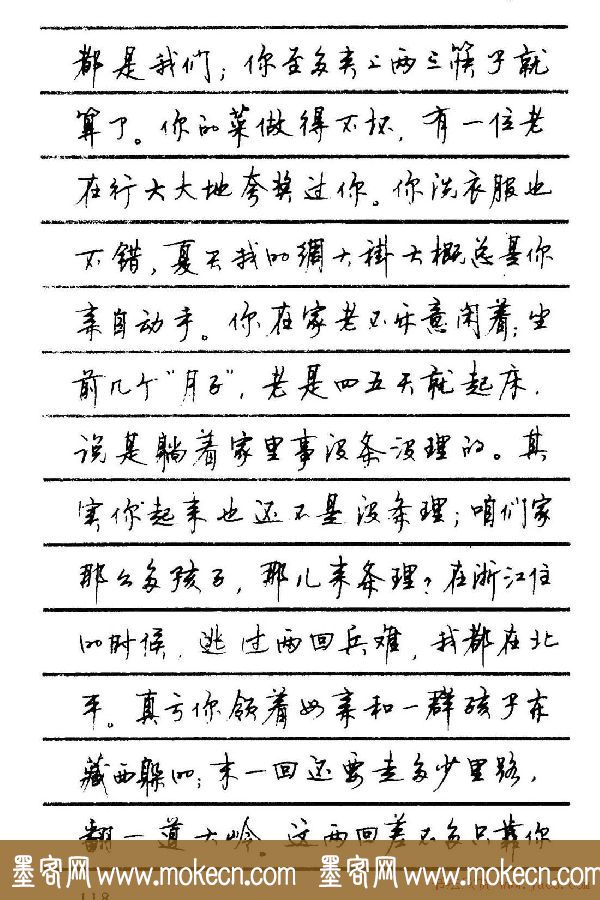 都是我们；你至多夹上两三筷子就
算了。你的菜做得不坏，有一位老
在行大大地夸奖过你。你洗衣服也
不错，夏天我的绸大褂大概总是你
亲自动手。你在家老不乐意闲着；坐
前几个“月子”，老是四五天就起床，
说是躺着家里事没条没理的。其
实你起来也还不是没条理；咱们家
那么多孩子，那儿来条理？在浙江住
的时候，逃过两回兵难，我都在北
平。真亏你领着母亲和一群孩子东
藏西躲的；末一回还要走多少里路，
翻一道大岭。这两回差不多只靠你
墨客网 www.mokecn.com 墨客网 www.mokecn.com
118